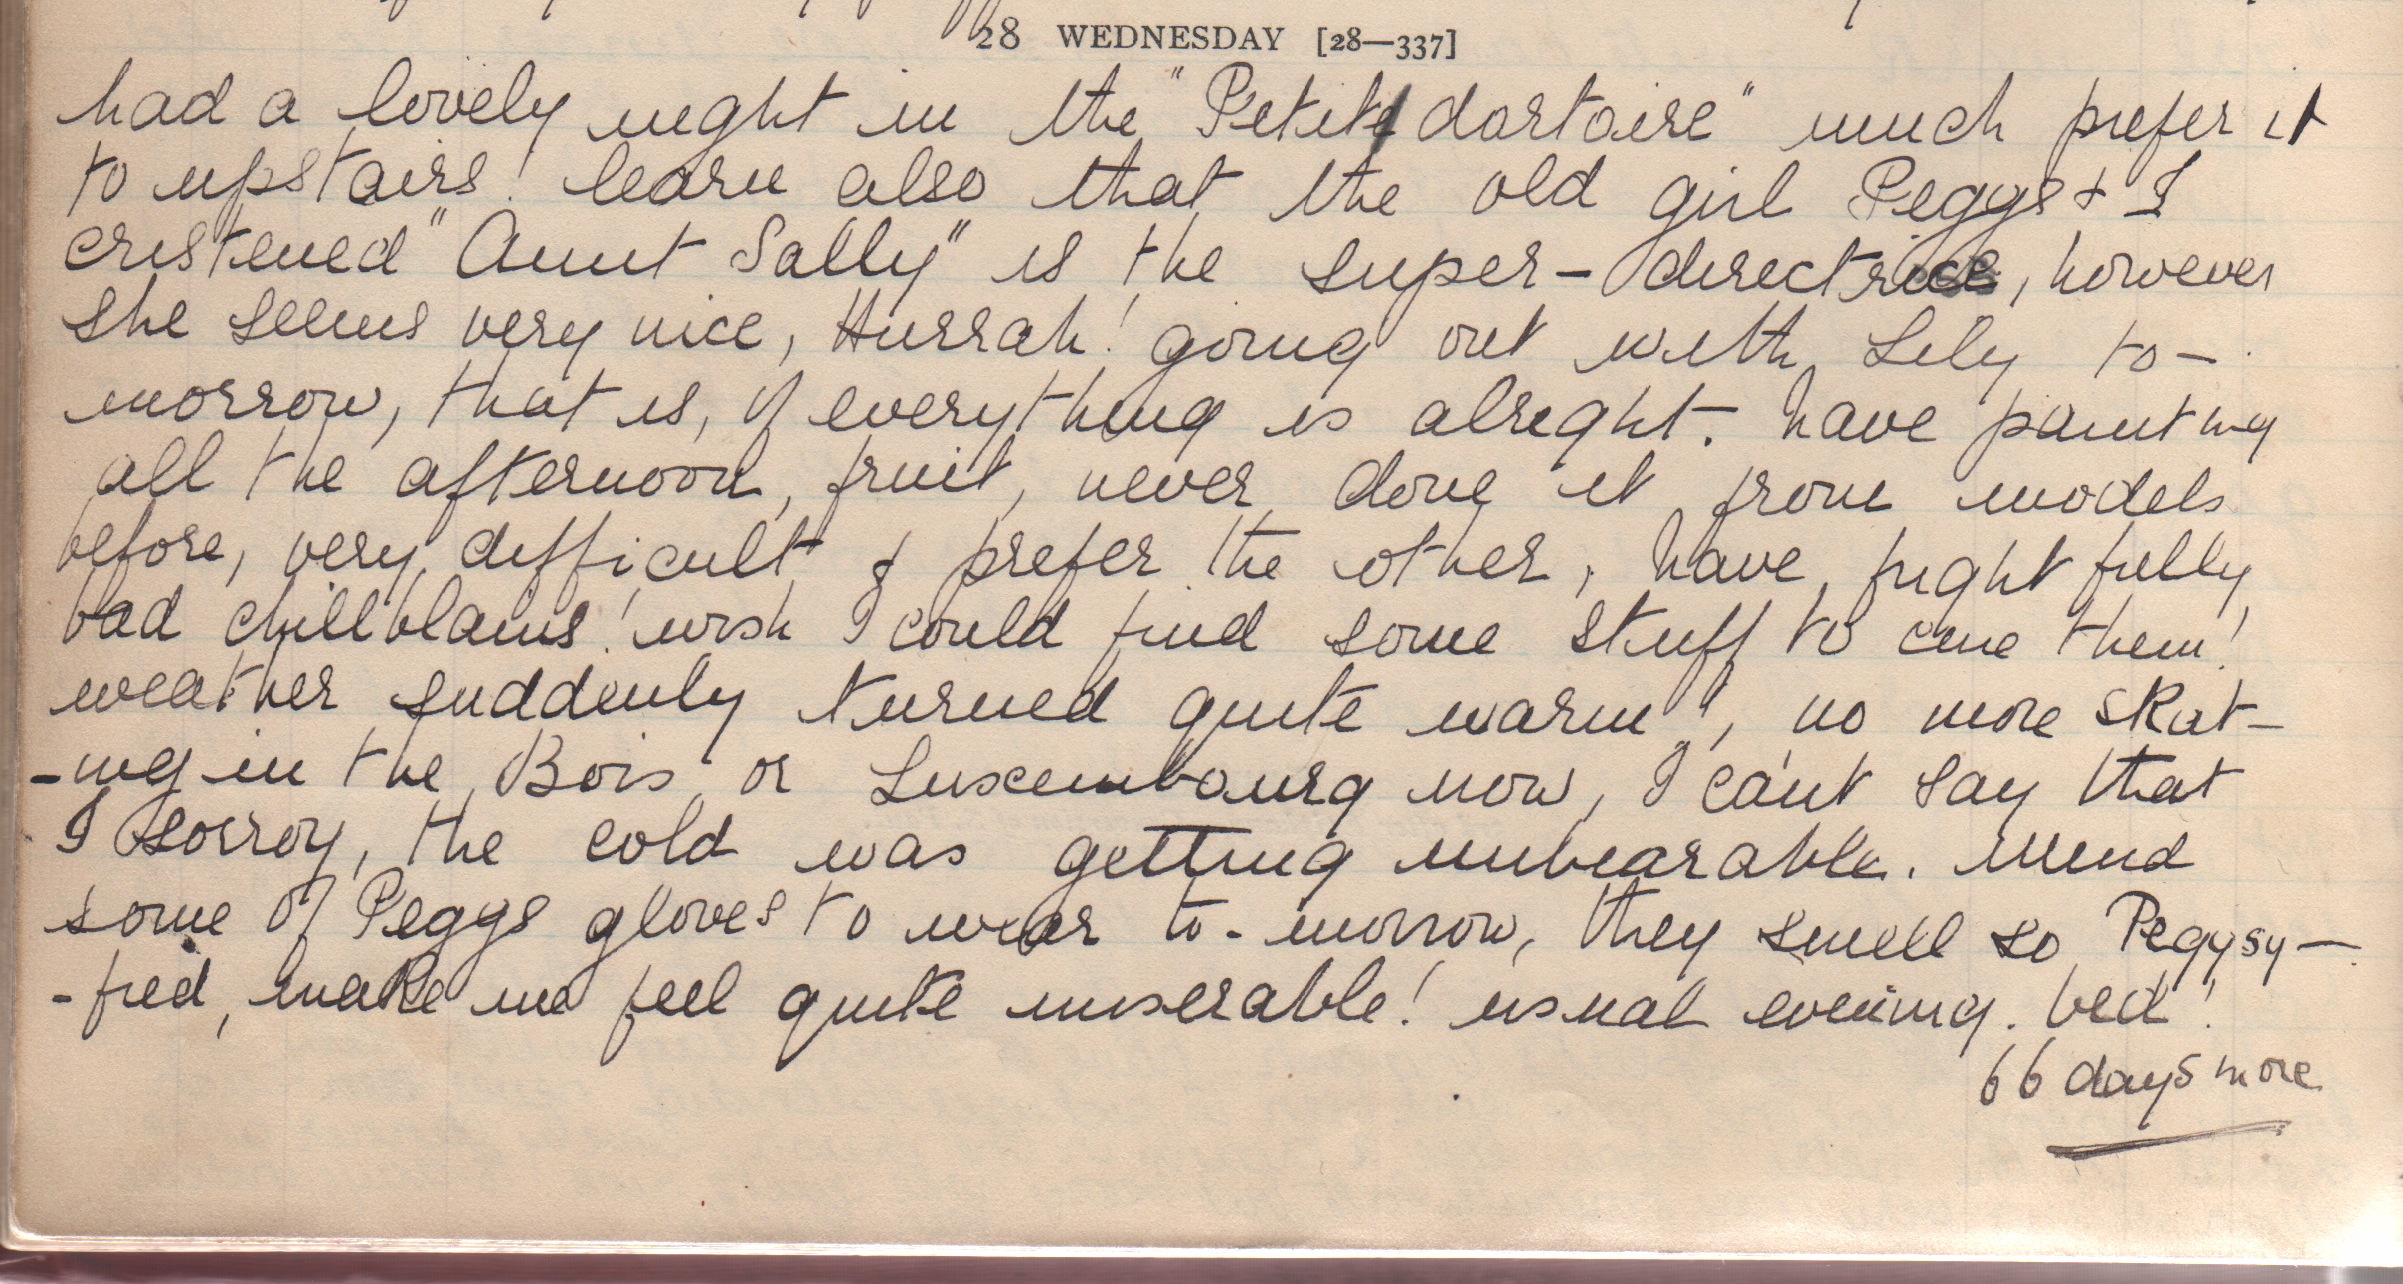 28 WEDNESDAY [28—337]
had a lovely night in the "Petite dortaire" much prefer it
to upstairs! learn also that the old girl Peggs & I
cristened "Aunt Sally" is the super-directrice, however
she seems very nice, Hurrah! going out with Lily to-
morrow, that is, if everything is alright. have painting
all the afternoon, fruit, never done it from models
before, very difficult & prefer the other, have frightfully
bad chillblains! wish I could find some stuff to cure them!
weather suddenly turned quite warm", no more skat-
-ing in the Bois or Luxembourg now, I can't say that
I sorroy, the cold was getting unbearable. Mend
some of Peggs gloves to wear to-morrow, they smell so Peggsy-
-fied, make me feel quite miserable! usual evening. bed!
66 days more